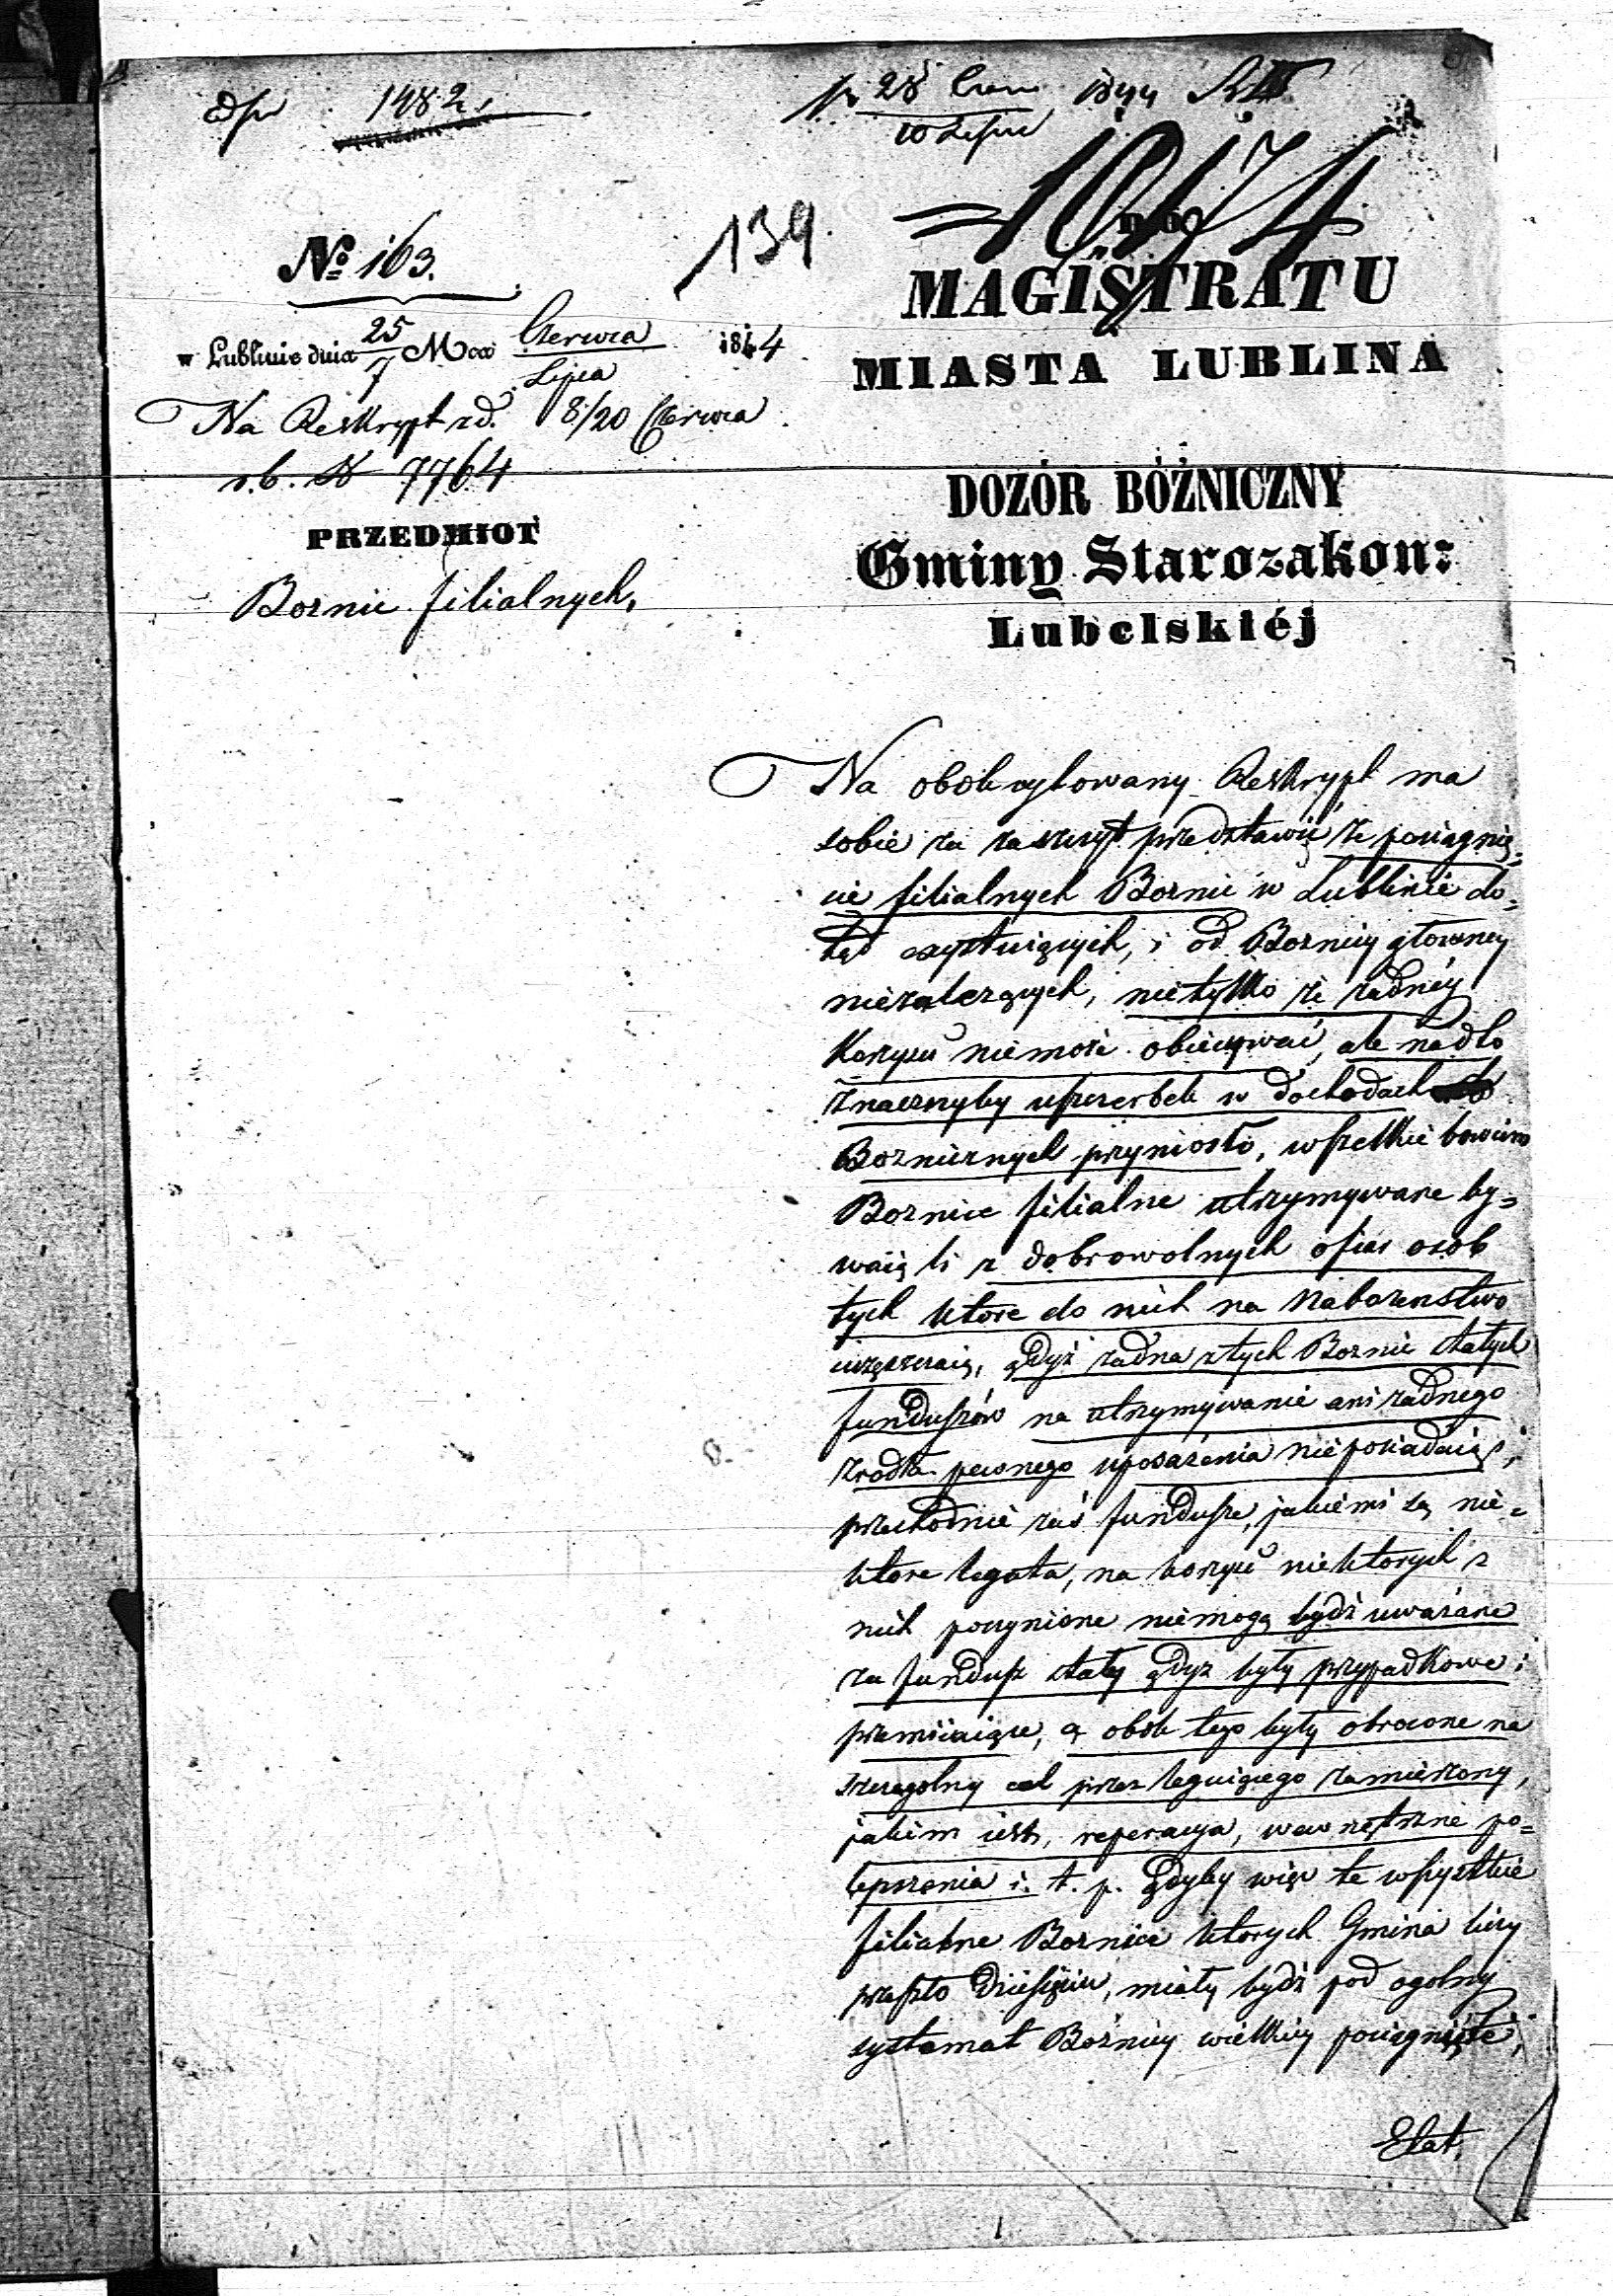 1482
pr 28 Czerw 1844
10 Lipca
10174
139
No 163.
DO
MAGISTRATU
MIASTA LUBLINA
w Lublinie dnia 25/7 Mca Czerwca/Lipca 1844
Na Reskrypt z d. 8/20 Czerwca
r. b. N 7764
PRZEDMIOT
Boznic filialnych.
DOZÓR BÓŻNICZNY
Gminy Starozakon:
Lubelskiéj
Na obok cytowany Reskrypt ma
sobie za zaszczyt przedstawić, że pociągnię=
cie filialnych Boznic w Lublinie do=
tąd exystuiących, i od Boznicy głowney
niezależących, nietylko że żadnéy
Korzyści niemoże obiecywać, ale nadto
znacznyby uszczerbek w dochodach
Bozniczych przyniosło, wszelkie bowiem
Boznice filialne utrzymywane by=
waią li z dobrowolnych ofiar osób
tych ktore do nich na Nabozenstwo
uczęszczaią, gdyż zadna z tych Boznic stałych
funduszów na utrzymywanie ani żadnego
zrodła pewnego uposażenia nieposiadaią,
przechodnie zaś fundusze, jakiemi są nie=
ktore legata, na korzyść niektorych z
nich poczynione niemogą bydź uważane
za fundusz stały gdyz były przypadkowe i
przemiiaiące, a obok tego były obrocone na
szczegolny cel przez leguiącego zamierzony,
jakim iest, reperacya, wewnętrzne po=
lepszenia i. t. p. Gdyby więc te wszystkie
filialne Boznice ktorych Gmina liczy
przeszło dziesięciu, miały bydź pod ogolny
systemat Bożnicy wielkiey pociągnięte,
Etat.